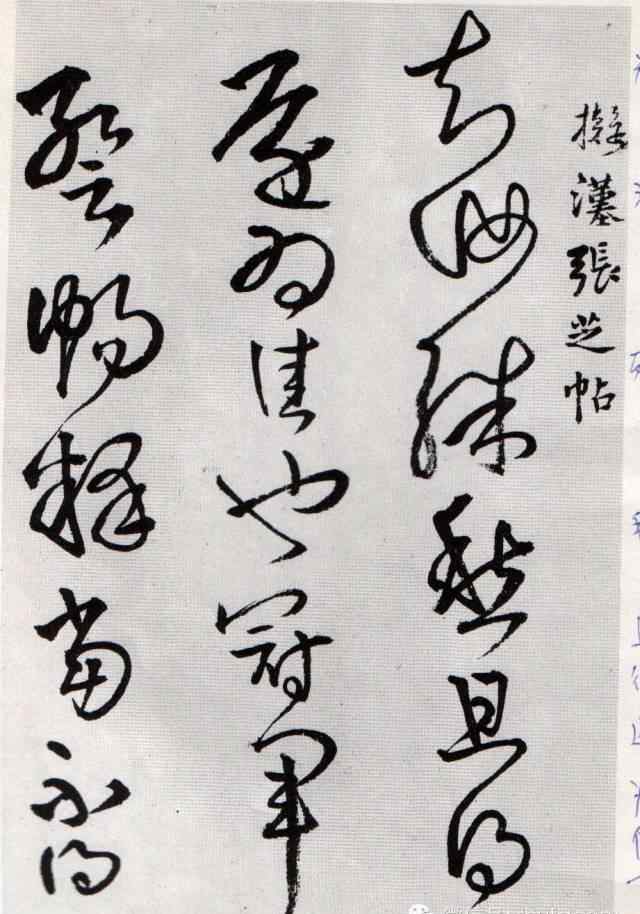 擬漢張芝帖
知汝殊愁且得
還為佳也冠軍
暫暢釋當不得